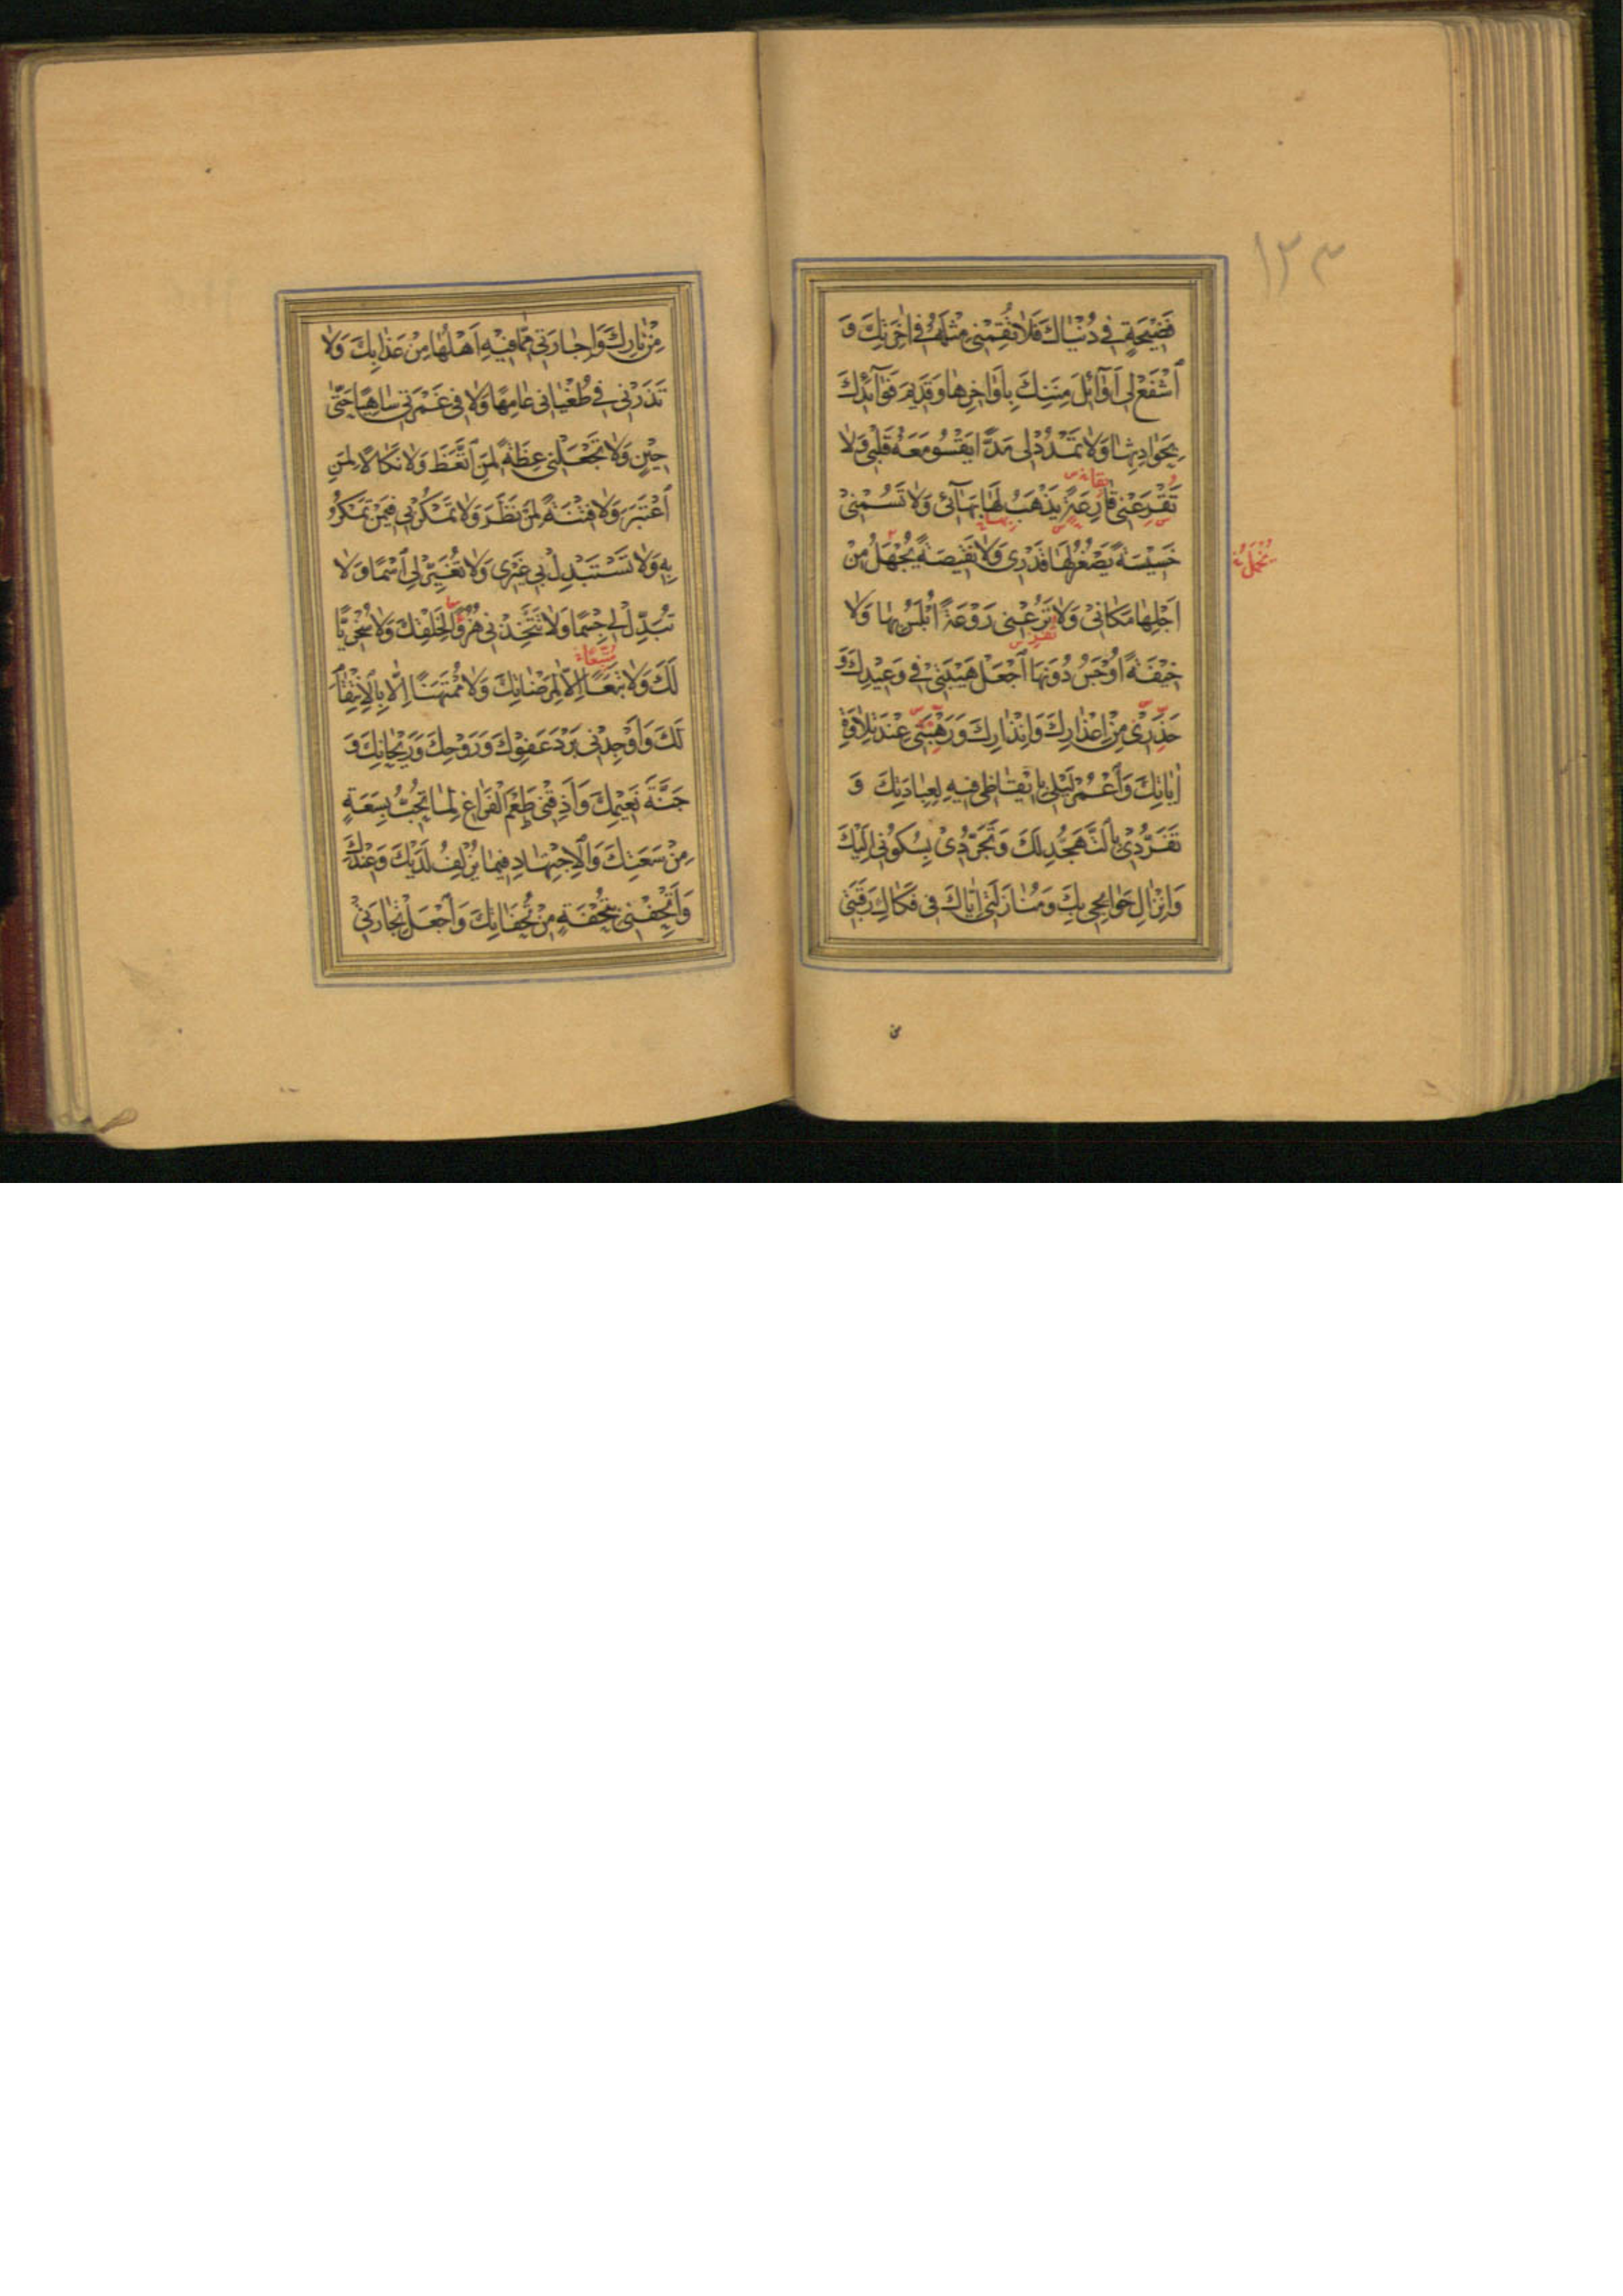 ١٢٣
فَضِيحَةٍ فِي دُنْيَاكَ فَلَا تُقِمْنِي مِثْلَهُ فِي اٰخِرَتِكَ وَ
ٱشْفَعْ لِي أَوَآئِلَ مِنَنِكَ بِأَوَاخِرِهَا وَقَدِيمَ فَوَآئِدِكَ
بِحَوَادِثِهَا وَلَا تَمْدُدْ لِي مَدًّا يَقْسُو مَعَهُ قَلْبِي وَلَا
تَقْرَعْنِي قَارِعَةً يَذْهَبُ لَهَا بَهَآئِي وَلَا تَسُمْنِي
خَسِيسَةً يَصْغُرُ لَهَا قَدْرِي وَلَا نَقِيصَةً يُجْهَلُ مِنْ
أَجْلِهَا مَكَانِي وَلَا تَرُعْنِي رَوْعَةً أُبْلِسُ بِهَا وَلَا
خِيفَةً أُوجِسُ دُونَهَا ٱجْعَلْ هَيْبَتِي فِي وَعِيدِكَ وَ
حَذَرِي مِنْ إِعْذَارِكَ وَإِنْذَارِكَ وَرَهْبَتِي عِنْدَ تِلَاوَةِ
اٰيَاتِكَ وَٱعْمُرْ لَيْلِي بِإِيقَاظِي فِيهِ لِعِبَادَتِكَ وَ
تَفَرُّدِي بِٱلتَّهَجُّدِ لَكَ وَتَجَرُّدِي بِسُكُونِي إِلَيْكَ
وَإِنْزَالِ حَوَائِجِي بِكَ وَمُنَازَلَتِي إِيَّاكَ فِي فَكَاكِ رَقَبَتِي
مِنْ نَارِكَ وَإِجَارَتِي مِمَّا فِيهِ أَهْلُهَا مِنْ عَذَابِكَ وَلَا
تَذَرْنِي فِي طُغْيَانِي عَامِهًا وَلَا فِي غَمْرَتِي سَاهِيًا حَتَّى
حِينٍ وَلَا تَجْعَلْنِي عِظَةً لِمَنِ ٱتَّعَظَ وَلَا نَكَالًا لِمَنِ
ٱعْتَبَرَ وَلَا فِتْنَةً لِمَنْ نَظَرَ وَلَا تَمْكُرْ بِي فِيمَنْ تَمْكُرُ
بِهِ وَلَا تَسْتَبْدِلْ بِي غَيْرِي وَلَا تُغَيِّرْ لِي ٱسْمًا وَلَا
تُبَدِّلْ لِي جِسْمًا وَلَا تَتَّخِذْنِي هُزُوًا لِخَلْقِكَ وَلَا سُخْرِيًّا
لَكَ وَلَا تَبَعًا إِلَّا لِمَرْضَاتِكَ وَلَا مُمْتَهَنًا إِلَّا بِالْاِنْتِقَامِ
لَكَ وَأَوْجِدْنِي بَرْدَ عَفْوِكَ وَرَوْحِكَ وَرَيْحَانِكَ وَ
جَنَّةِ نَعِيمِكَ وَأَذِقْنِي طَعْمَ الْفَرَاغِ لِمَا تُحِبُّ بِسَعَةٍ
مِنْ سَعَتِكَ وَٱلْاِجْتِهَادِ فِيمَا يُزْلِفُ لَدَيْكَ وَعِنْدَكَ
وَأَتْحِفْنِي بِتُحْفَةٍ مِنْ تُحَفَاتِكَ وَٱجْعَلْ تِجَارَتِي